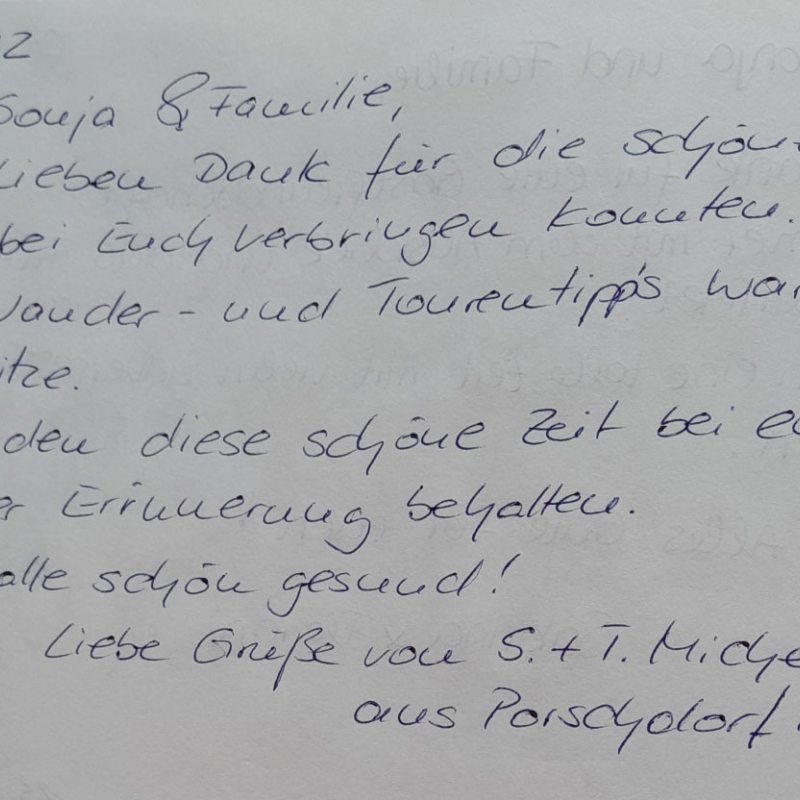 Sonja & Familie,
lieben Dank für die schön
bei Euch verbringen konnten.
Wander- und Tourentipp's war
itze.
den diese schöne Zeit bei e
er Erinnerung behalten.
alle schön gesund!
Liebe Grüße von S. + T. Miche
aus Porschdorf.